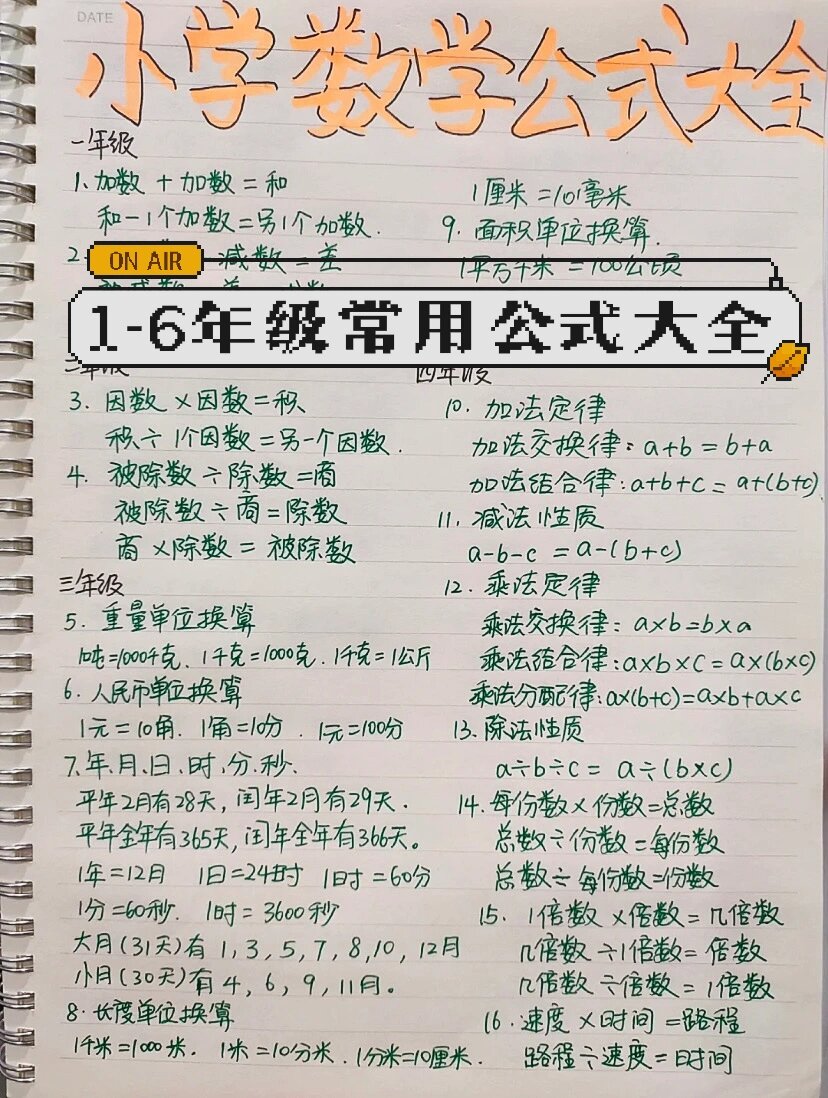 DATE
小学数学公式大全
一年级
1、加数 + 加数 = 和
和-1个加数=另1个加数.
ON AIR
减数 = 差
1-6年级常用公式大全
3. 因数 × 因数 = 积
积 ÷ 1个因数 = 另一个因数.
4. 被除数 ÷ 除数 = 商
被除数 ÷ 商 = 除数
商 × 除数 = 被除数
三年级
5. 重量单位换算
1吨=1000千克. 1千克=1000克. 1千克=1公斤
6. 人民币单位换算
1元=10角. 1角=10分. 1元=100分
7、年、月、日、时、分、秒.
平年2月有28天, 闰年2月有29天.
平年全年有365天, 闰年全年有366天。
1年=12月 1日=24时 1时=60分
1分=60秒. 1时=3600秒
大月(31天)有 1, 3, 5, 7, 8, 10, 12月
小月(30天)有 4, 6, 9, 11月。
8. 长度单位换算
1千米=1000米. 1米=10分米. 1分米=10厘米.
1厘米=10毫米
9. 面积单位换算.
1平方千米 = 100公顷
四年级
10. 加法定律
加法交换律: a+b=b+a
加法结合律: a+b+c=a+(b+c)
11. 减法性质
a-b-c = a-(b+c)
12. 乘法定律
乘法交换律: a×b=b×a
乘法结合律: a×b×c=a×(b×c)
乘法分配律: a×(b+c)=a×b+a×c
13. 除法性质
a÷b÷c = a÷(b×c)
14. 每份数×份数=总数
总数÷份数=每份数
总数÷每份数=份数
15. 1倍数×倍数=几倍数
几倍数÷1倍数=倍数
几倍数÷倍数=1倍数
16. 速度×时间=路程
路程÷速度=时间